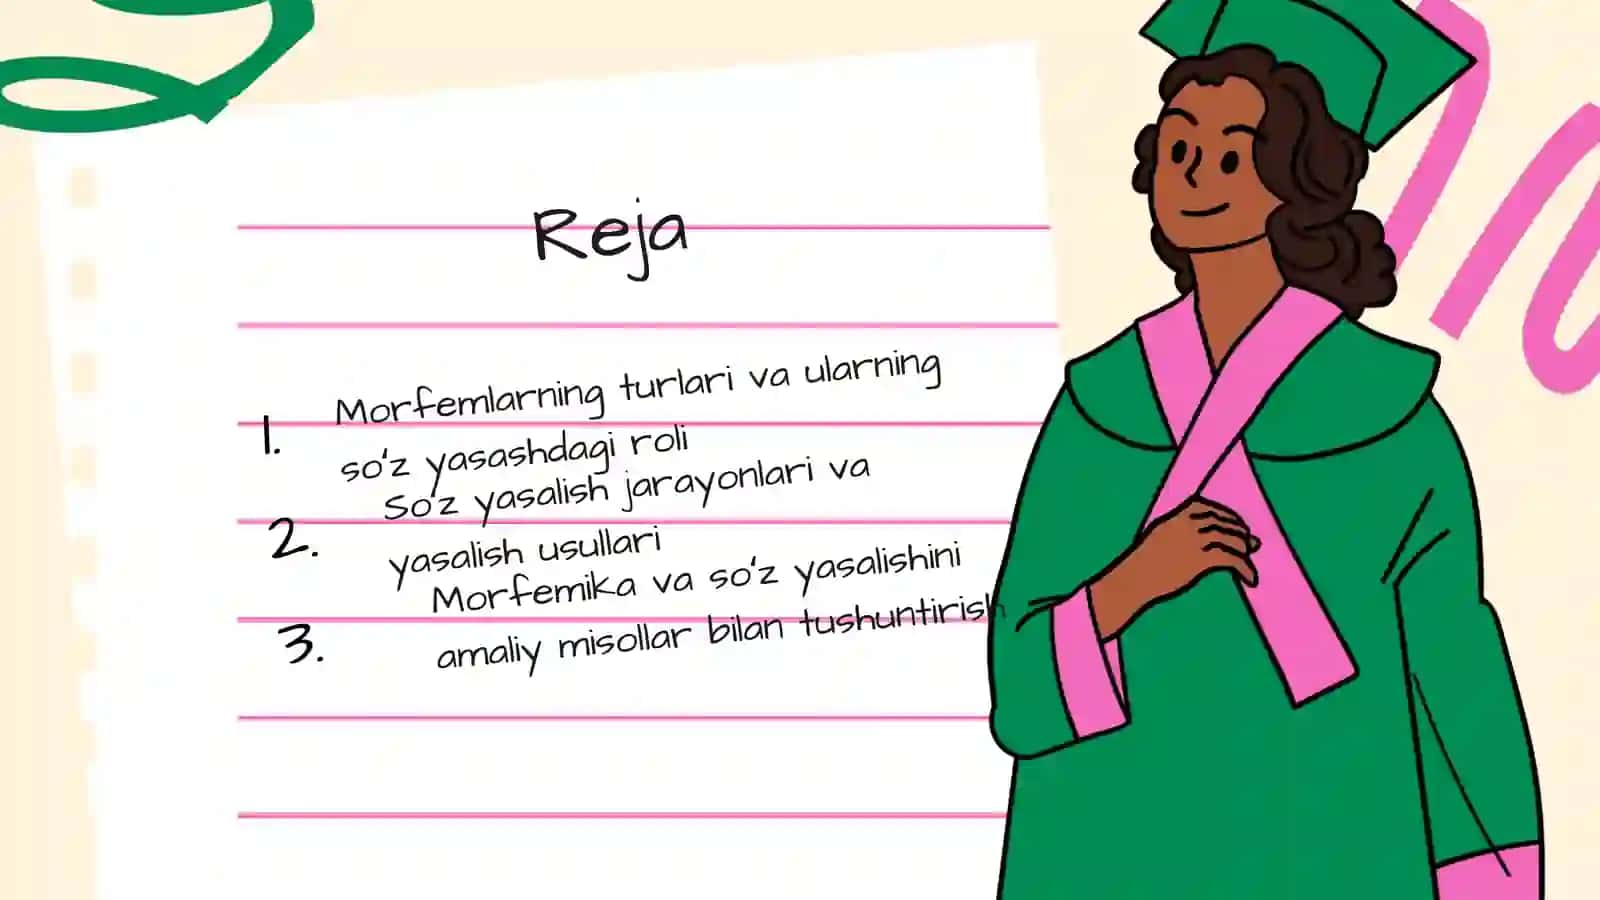 Reja
1. Morfemlarning turlari va ularning
so'z yasashdagi roli
2. So'z yasalish jarayonlari va
yasalish usullari
3. Morfemika va so'z yasalishini
amaliy misollar bilan tushuntirish